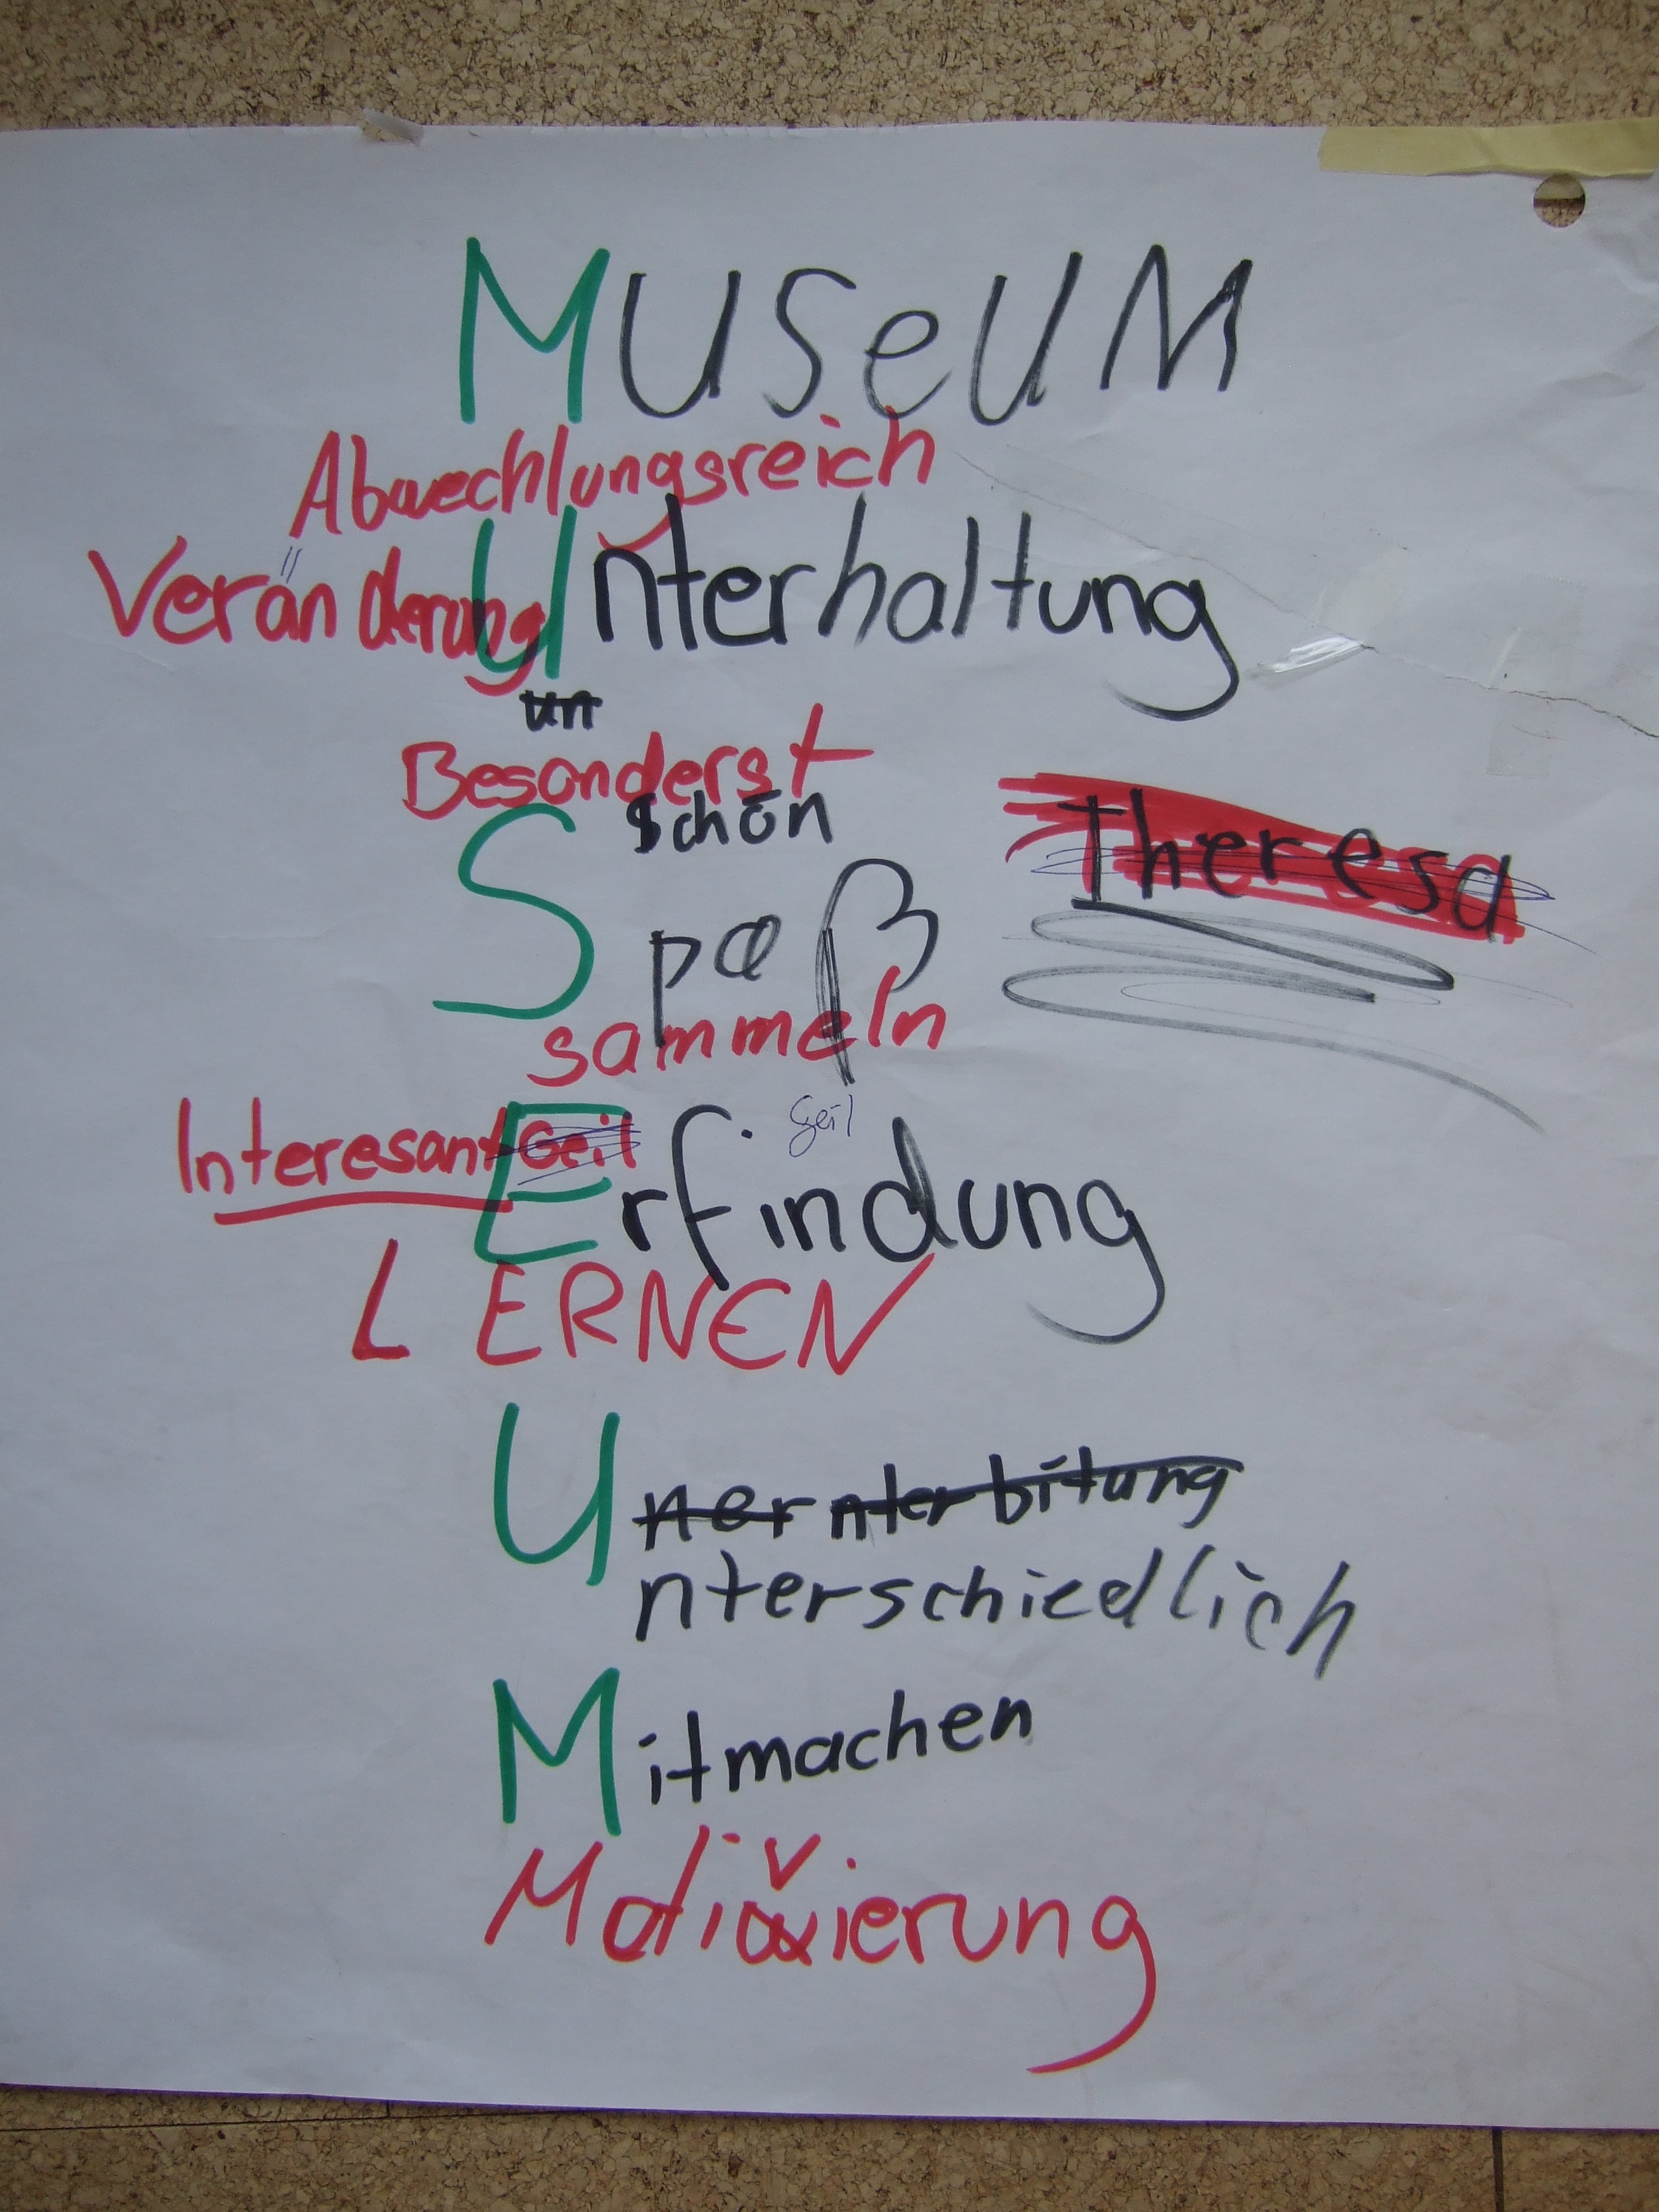 MUSeUM
Abwechlungsreich
Veränderung
Unterhaltung
un
Besonderst
schön
Theresa
Spaß
sammeln
geil
Interesant Geil
Erfindung
LERNEN
Uner nterbitung
nterschiedlich
Mitmachen
Motivierung